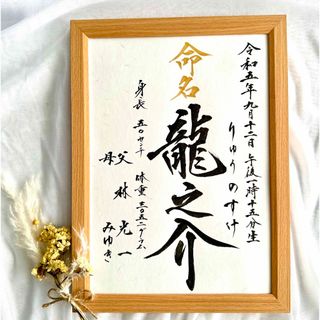 令和五年九月十二日午後一時十五分生
りゅうのすけ
命名
龍之介
身長 五〇センチ 体重 三〇五二グラム
父 林 光一
母 みゆき